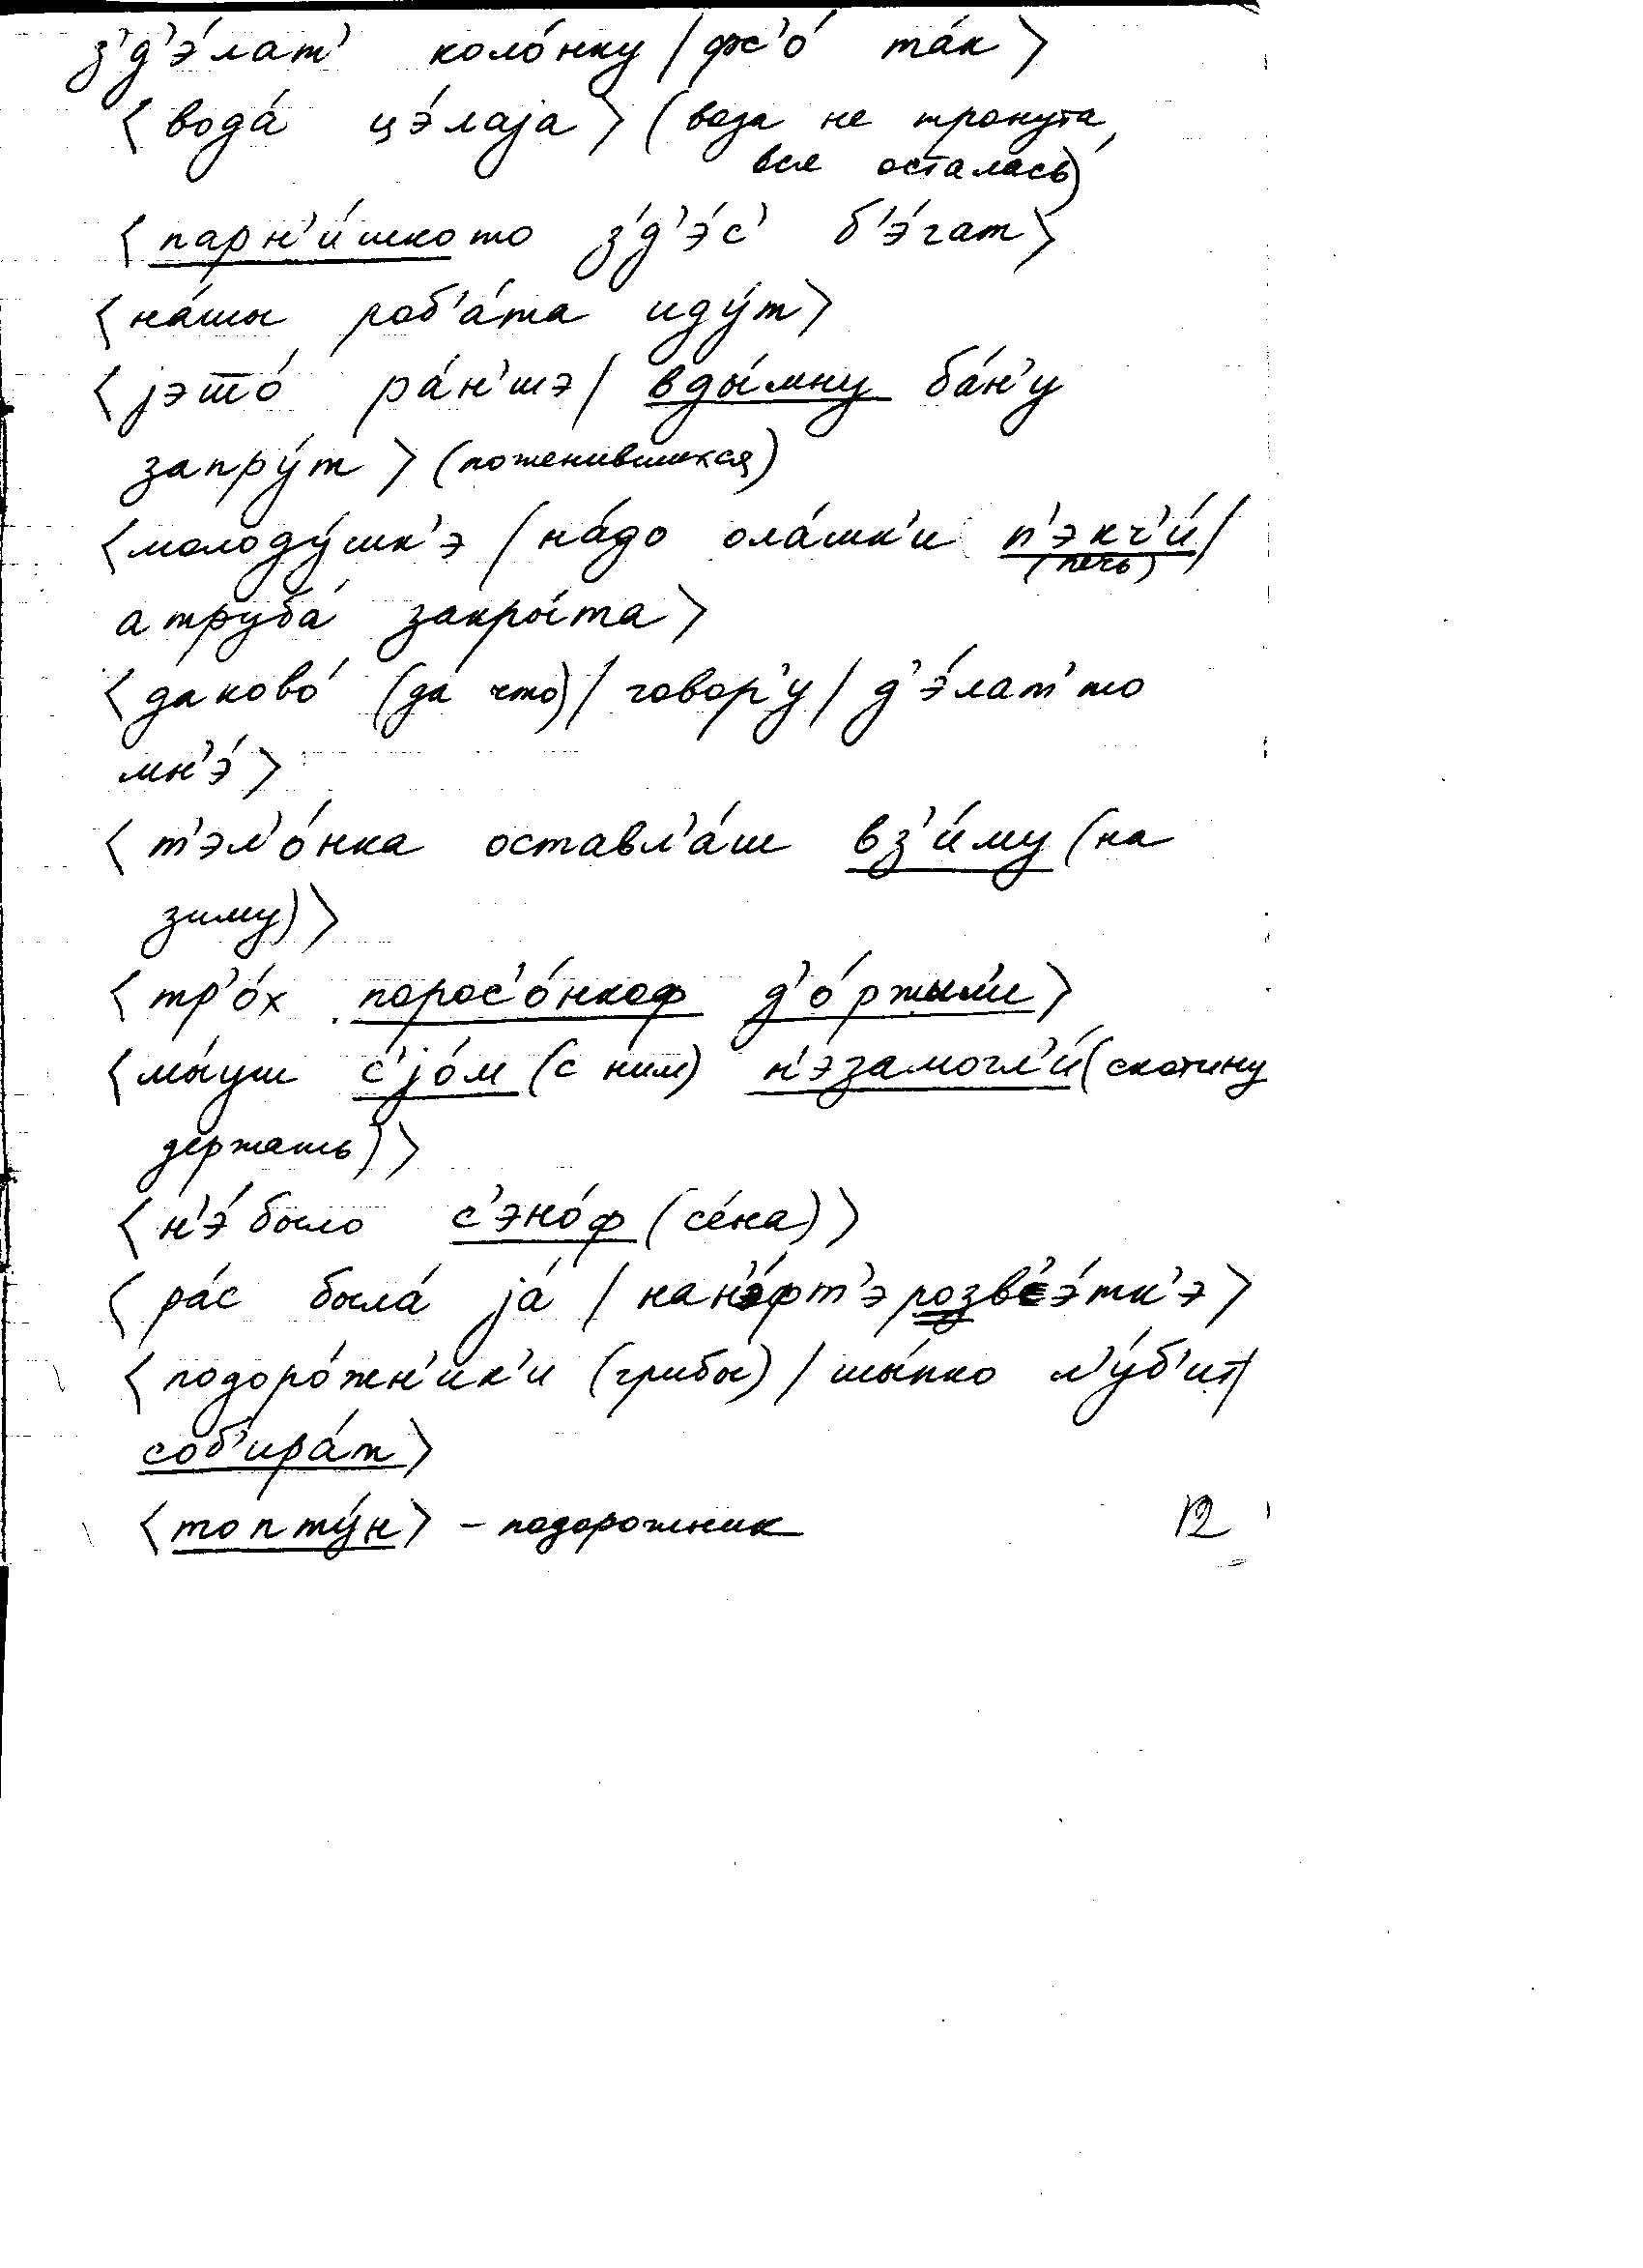 з'д'э́лат' коло́нку / фс'о́ та́к >
< вода́ цэ́лаjа > (вода не тронута,
вся осталась)
< парн'и́шкото з'д'э́с' б'э́гат >
< на́шы роб'а́та иду́т >
< jэто́ ра́н'шэ / вды́мну ба́н'у
запру́т > (поженившихся)
< молоду́шк'э / на́до ола́шк'и п'экч'и́ /
(печь)
а труба́ закры́та >
< даково́ (да что) / говор'у / д'э́лат'то
мн'э́ >
< т'эл'о́нка оставл'а́ш вз'и́му (на
зиму) >
< тр'о́х порос'о́нкоф д'о́ржыл'и >
< мы́уш с'jо́м (с ним) н'эзамогл'и́ (скотину
держать) >
< н'э́было с'эно́ф (се́на) >
< ра́с была́ jа́ / нан'э́фт'э розв'э́тк'э >
< подоро́жн'ик'и (грибы) / шы́пко л'у́б'ит /
соб'ира́т >
< топту́н > – подорожник
12